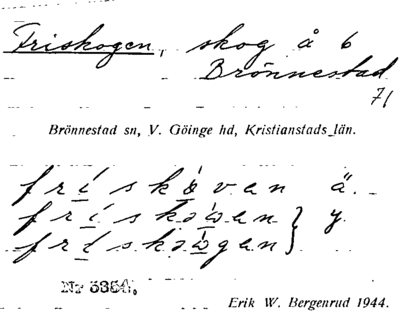 Friskogen, skog å 6
Brönnestad
71
Brönnestad sn, V. Göinge hd, Kristianstads län.
frískòvan ä.
frískɔẁan } y
frískɔẁgan }
Nr 3354,
Erik W. Bergenrud 1944.